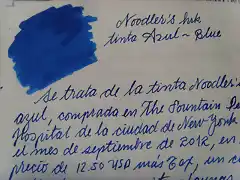 Noodler's Ink
tinta Azul ~ Blue
Se trata de la tinta Noodler's
azul, comprada en The Fountain Pe
Hospital de la ciudad de New York
el mes de septiembre de 2012, en
precio de 12.50 USD más Tax, un c